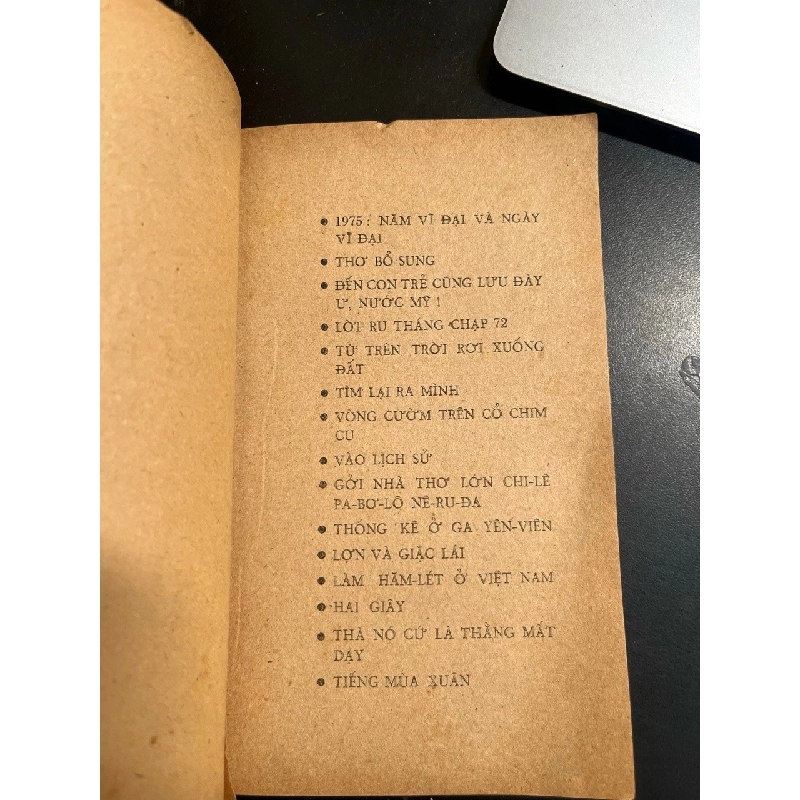 • 1975 : NĂM VĨ ĐẠI VÀ NGÀY
VĨ ĐẠI
• THƠ BỔ SUNG
• ĐẾN CON TRẺ CŨNG LƯU ĐÀY
Ư, NƯỚC MỸ !
• LỜI RU THÁNG CHẠP 72
• TỪ TRÊN TRỜI RƠI XUỐNG
ĐẤT
• TÌM LẠI RA MÌNH
• VÒNG CƯỜM TRÊN CỔ CHIM
CU
• VÀO LỊCH SỬ
• GỞI NHÀ THƠ LỚN CHI-LÊ
PA-BƠ-LÔ NÊ-RU-ĐA
• THỐNG KÊ Ở GA YÊN-VIÊN
• LỢN VÀ GIẶC LÁI
• LÀM HĂM-LÉT Ở VIỆT NAM
• HAI GIÂY
• THÀ NÓ CỨ LÀ THẰNG MẤT
DẠY
• TIẾNG MÙA XUÂN